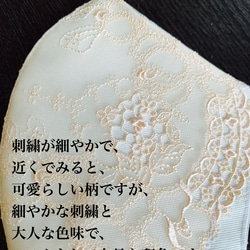 刺繍が細やかで、
近くでみると、
可愛らしい柄ですが、
細やかな刺繍と
大人な色味で、